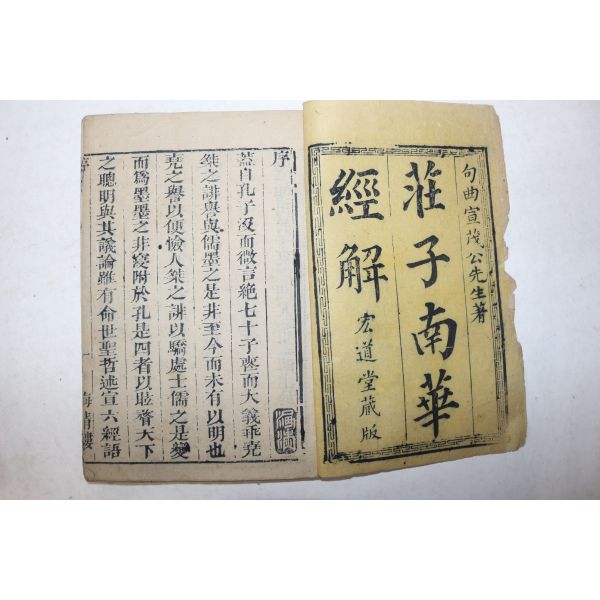 句曲宣茂公先生著
莊子南華
經解
宏道堂藏版
序
蓋自孔子沒而微言絶七十子喪而大義乖堯
桀之誹譽與儒墨之是非至今而未有以明也
堯之譽以便儉人桀之誹以驕處士儒之是變
而爲墨墨之非變附於孔是四者以眩瞀天下
之聰明與其議論雖有命世聖哲述宣六經語
海清樓